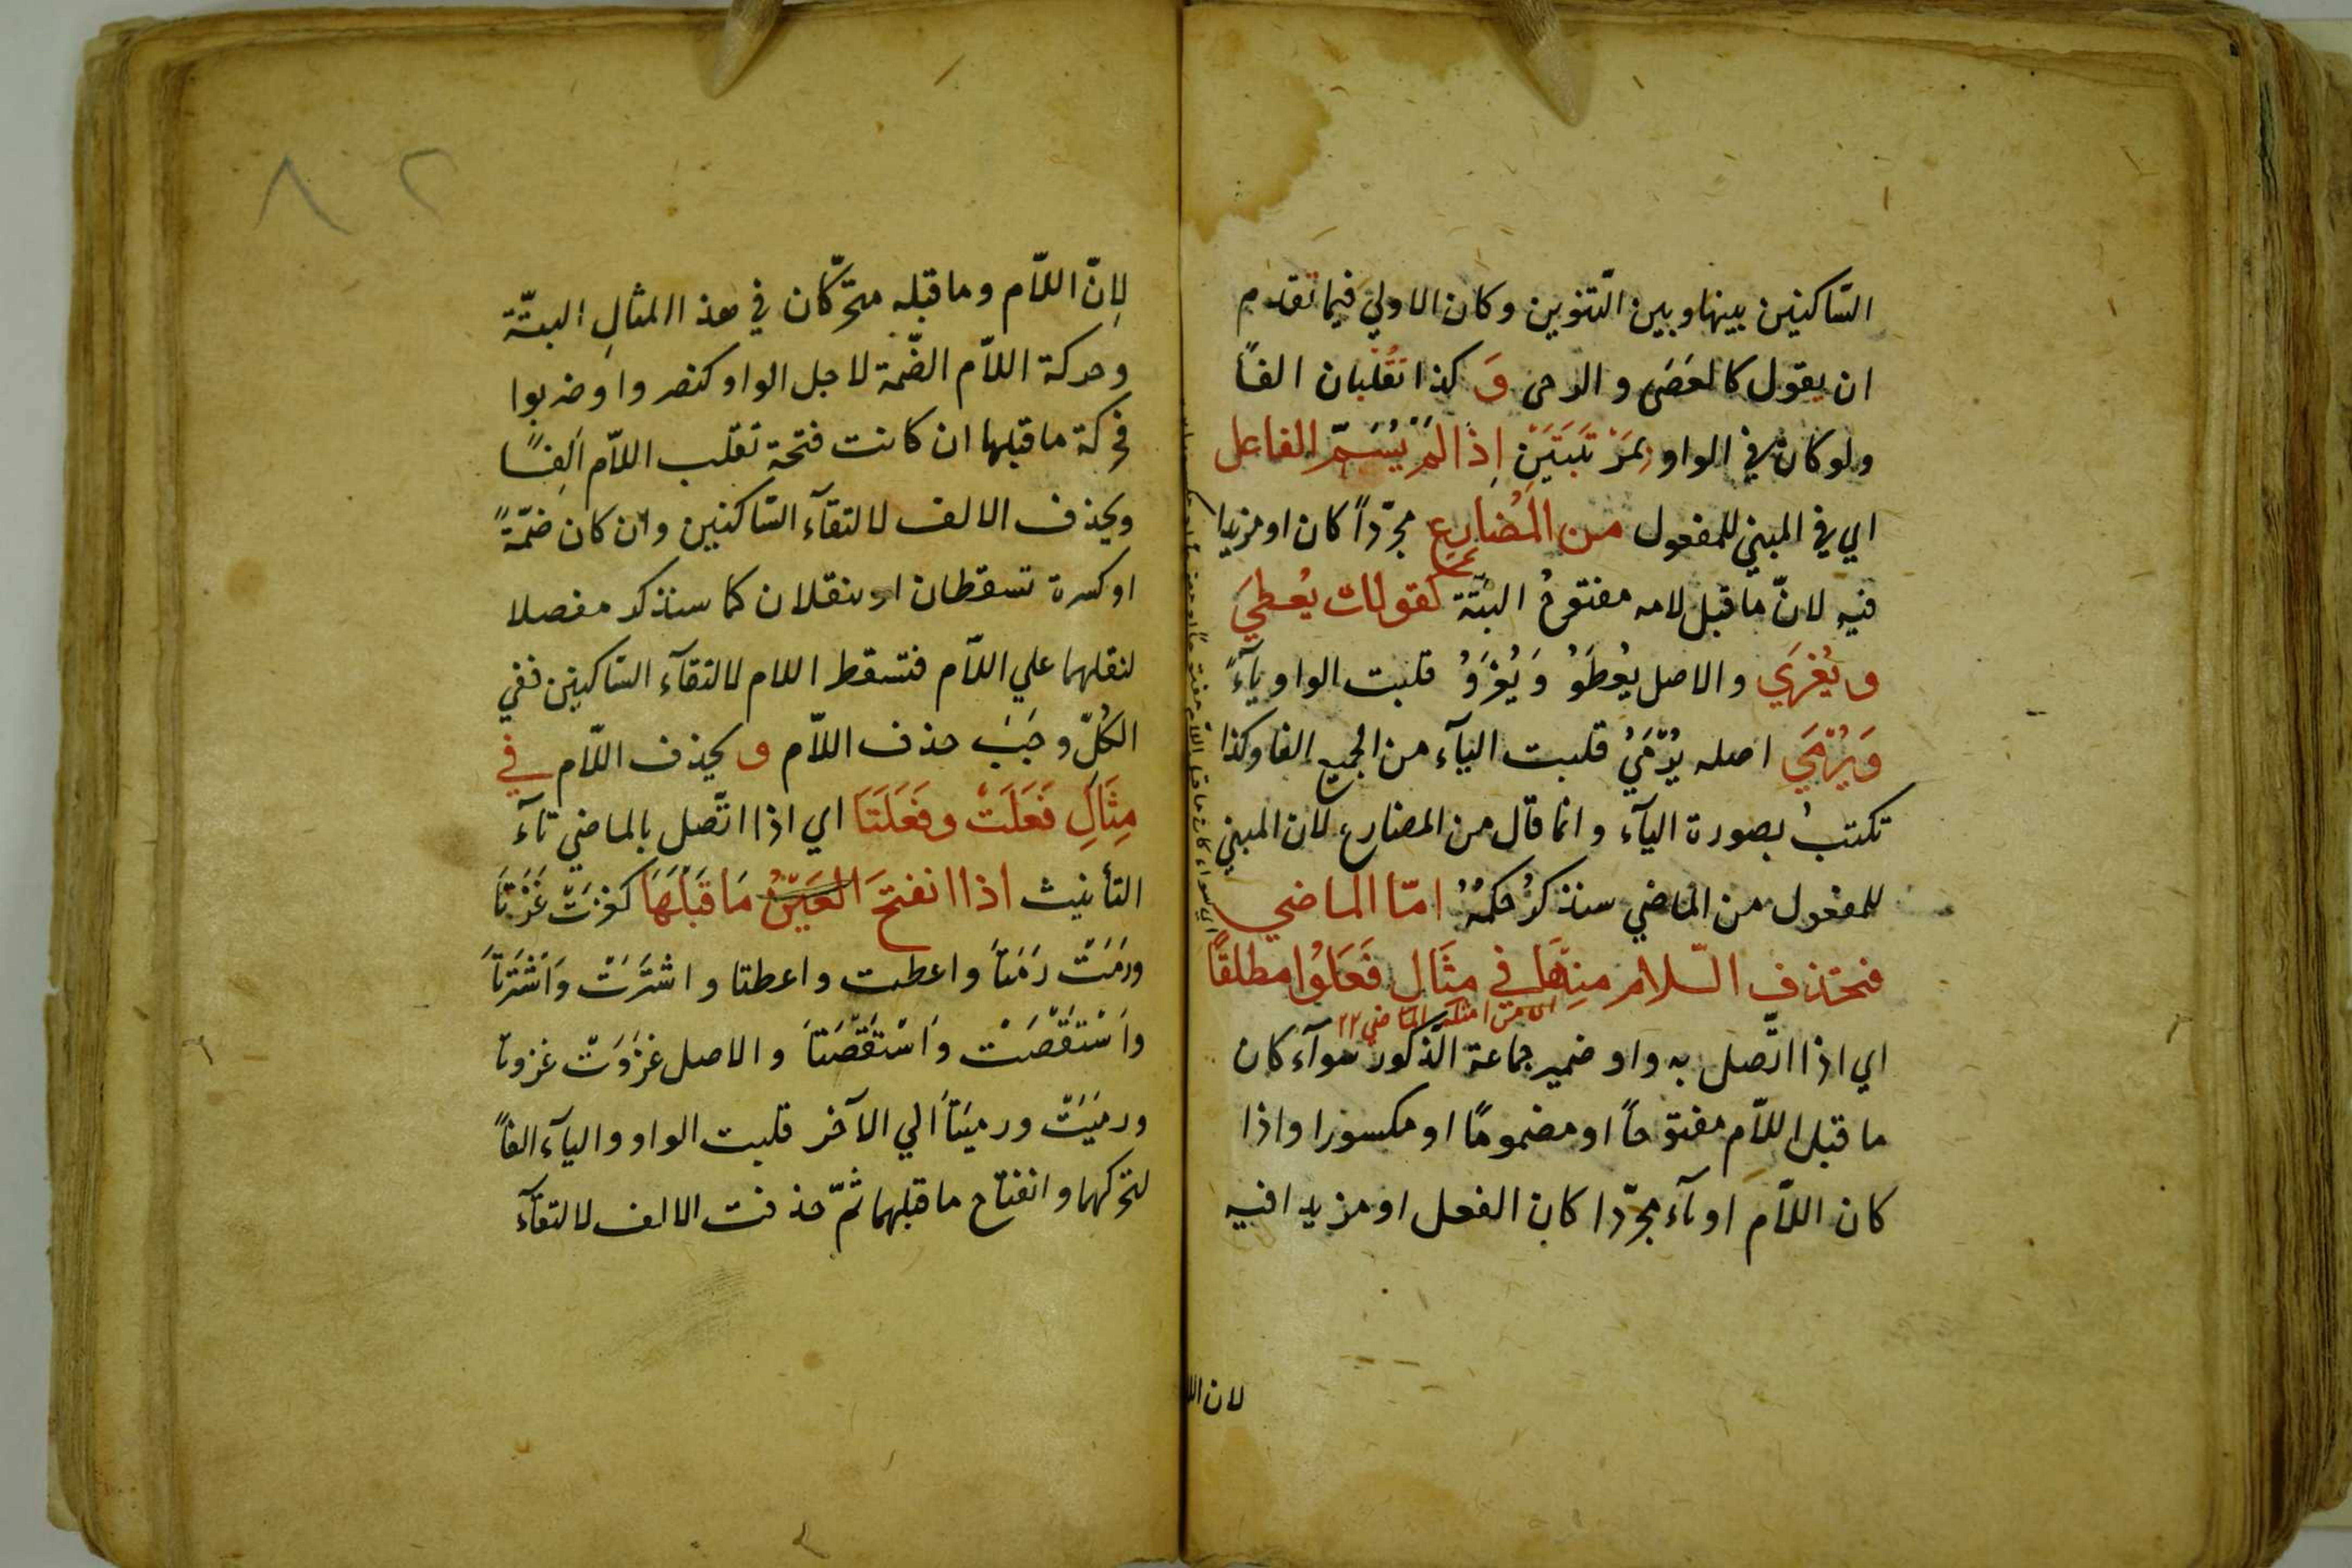 السّاكنين بينها وبين التّنوين وكان الاولي فيما تقدم
ان يقول كالعَصَى والرحى وَ كذا تُقْلبان الفاً
ولو كان في الواو بمَرْتَبَتَيْنِ إِذَا لَمْ يُسَمَّ الفاعل
اي في المبني للمفعول من المُضارِع مجرّداً كان او مزيدا
فيه لانّ ما قبل لامه مفتوحٌ البتّة كقولك يُعطيَ
و يُغْزَي والاصل يُعْطَوُ وَيُغْزَوُ قلبت الواو يآءً
وَيُرْمَي اصله يُرْمَيُ قلبت اليآء من الجميع الفا وكذا
تكتبُ بصورة اليآء وانما قال من المضارع لان المبني
للمفعول من الماضي سنذكرُ حكمهُ امّا الماضي
فتحذف السّلام منها في مثَال فَعَلُوا مطلقًا
اي من امثلة الماضي ٢٢
اي اذا اتّصل به واو ضمير جماعة الذكور سوآء كان
ما قبل اللاّم مفتوحاً او مضمومًا او مكسورا واذا
كان اللاّم او يآء مجرّدا كان الفعل او مزيدا فيه
لان الل
٨٢
لانّ اللاّم وما قبله متحرّكان في هذا المثالِ البتّة
وحركة اللاّم الضّمة لاجل الواو كنصروا وضربوا
فحركة ما قبلها ان كانت فتحة تقلب اللاّم اَلِفًا
ويحذف الالف لالتقآء السّاكنين وان كان ضمّةً
او كسرة تسقطان او ينقلان كما سنذكر مفصلا
لثقلهما علي اللاّم فتسقط اللام لالتقآء السّاكنين ففي
الكُلّ وجَبَ حذف اللاّم و يحذف اللاّم في
مِثَالِ فَعَلَتْ وفَعَلَتَا اي اذا اتّصل بالماضي تآء
التأنيث اذا انفتحَ العَيْنُ مَا قَبْلَهَا كغزَتْ غَزَتَا
ورَمَتْ رَمَتَا واعطت واعطتا واشتَرَتْ وَاَشْتَرَتَا
وَاسْتَقْصَتْ وَاسْتَقْصَتَا والاصل غزَوَتْ غزوتا
ورمَيَتْ ورميَتَا الي الآخر قلبت الواو واليآء الفاً
لتحركهما وانفتاح ما قبلهما ثمّ حذفت الالف لالتقآء